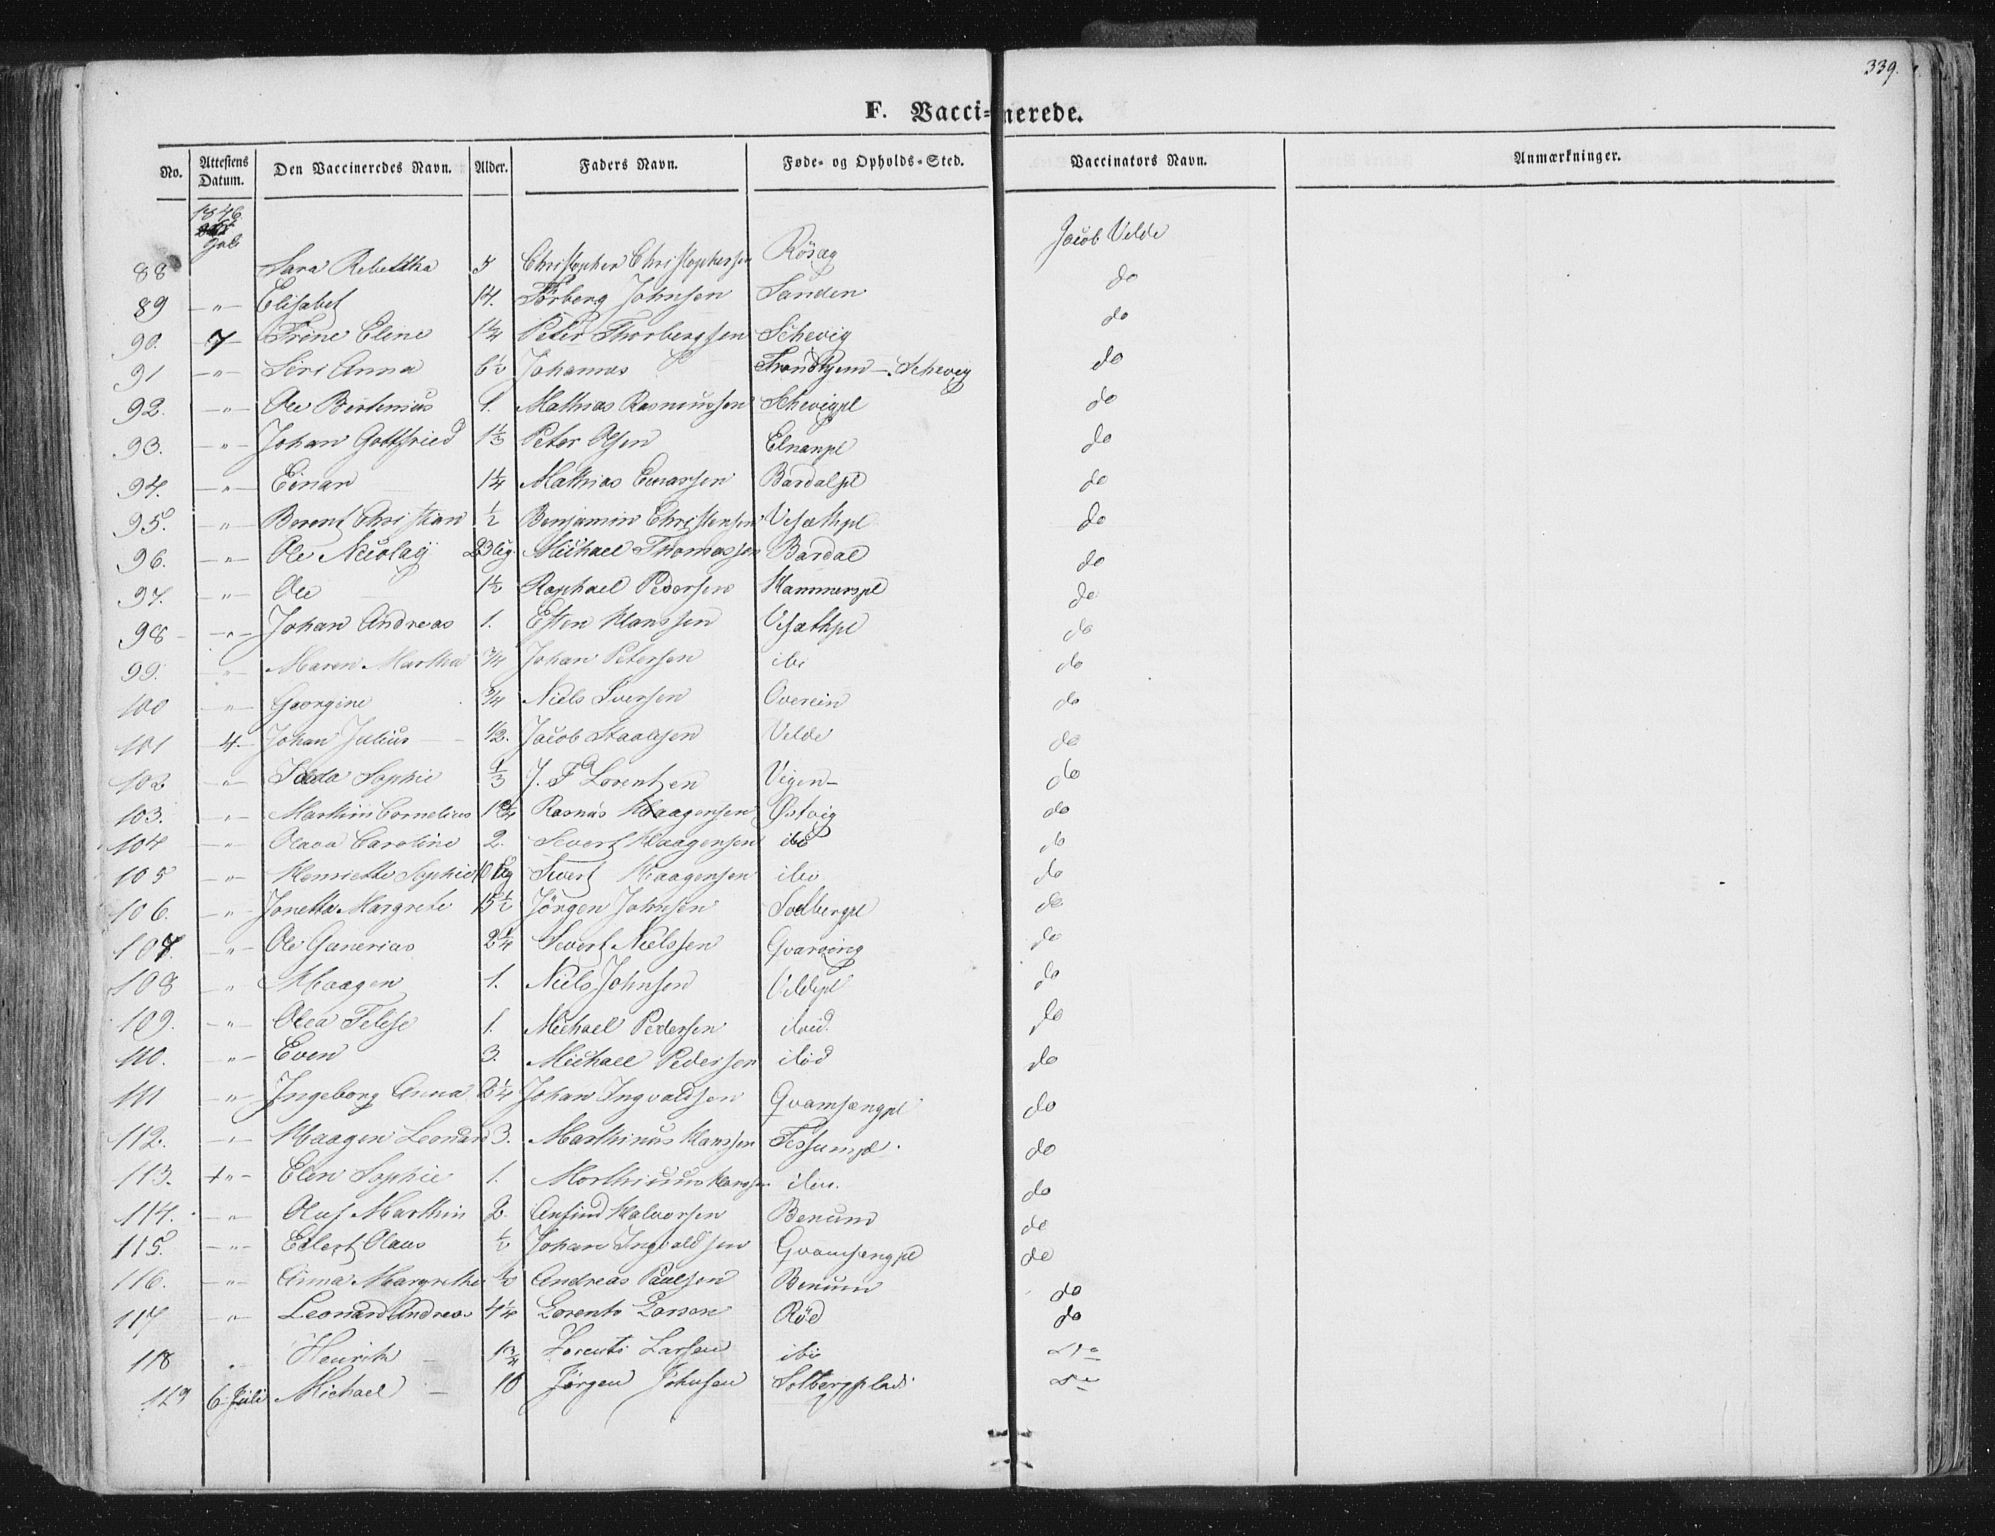 339.
F. Vacci=nerede.
No. Attestens Datum. Den Vaccineredes Navn. Alder. Faders Navn. Føde- og Opholds-Sted. Vaccinators Navn. Anmærkninger.
1846
Juli
88 Sara Rebettha 5 Christopher Christophersen Røsæg Jacob Velde
89 -"- Elisabet 14. Torberg Johnsen Sanden do
90. 7 Trine Eline 1¼ Peter Thorbergsen Schevig do
91 -"- Siri Anna 6½ Johannes Trondhjem - Schevig do
92. -"- Ole Bertinius 1. Mathias Rasmussen Schevigpl do
93. -"- Johan Gottfried 1⅓ Peter Olsen Elnanpl do
94. -"- Einar 1¼ Mathias Einarsen Bardalpl do
95. " Berent Christian ½ Benjamin Christensen Vesæthpl do
96. -"- Ole Nicolay 23 Ug. Michael Thomassen Bardal do
97. -"- Ole 1½ Raphael Pedersen Hammerspl do
98 -"- Johan Andreas 1. Esten Hanssen Vesæthpl do
99. " Maren Martha ¾ Johan Petersen ibi do
100 -"- Georgine ¾ Niels Iversen Overein do
101 4. Johan Julius 1½. Jacob Staalesen Velde do
102 " Sophie ⅓ J. F. Lorentzen Vigen do
103. -"- Marthin Cornelius 1¾ Rasmus Haagensen Østvig do
104 " Olava Caroline 2. Sivert Haagensen ibi do
105 " Henriette Sophie 10 Ug Sivert Haagensen ibi do
106. -"- Jonetta Margrete 15½ Jørgen Johnsen Solbergpl do
107 " Ole Ganerius 2¼ Sivert Nielssen Qvarving do
108 " Haagen 1. Niels Johnsen Veldepl do
109. -"- Olea Felese 1. Michael Pedersen ibid. do
110. -"- Even 3. Michael Pedersen ibid do
111 -"- Ingeborg Anna 2¼ Johan Ingvaldsen Qvamsængpl do
112. -"- Haagen Leonard 3. Marthinus Hanssen Fossumpl. do
113. +"- Elen Sophie 1. Morthinus Hanssen ibi. do
114. -"- Oluf Marthin 2. Anfind Halvorsen Benum do
115. -"- Eilert Olaus ½ Johan Ingvaldsen Qvamsengpl do
116. -"- Anna Margrethe ½ Andreas Paulsen Benum do
117 -"- Leonard Andreas 4¼ Lorents Larsen Rød do
118 " Henrik 1¾ Lorents Larsen ibi do
119 6 Juli Michael 10 Jørgen Johnsen Solbergplads do